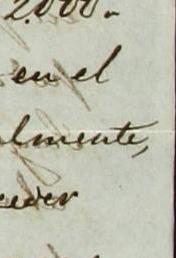 2.000.-
en el
lmente,
ceder